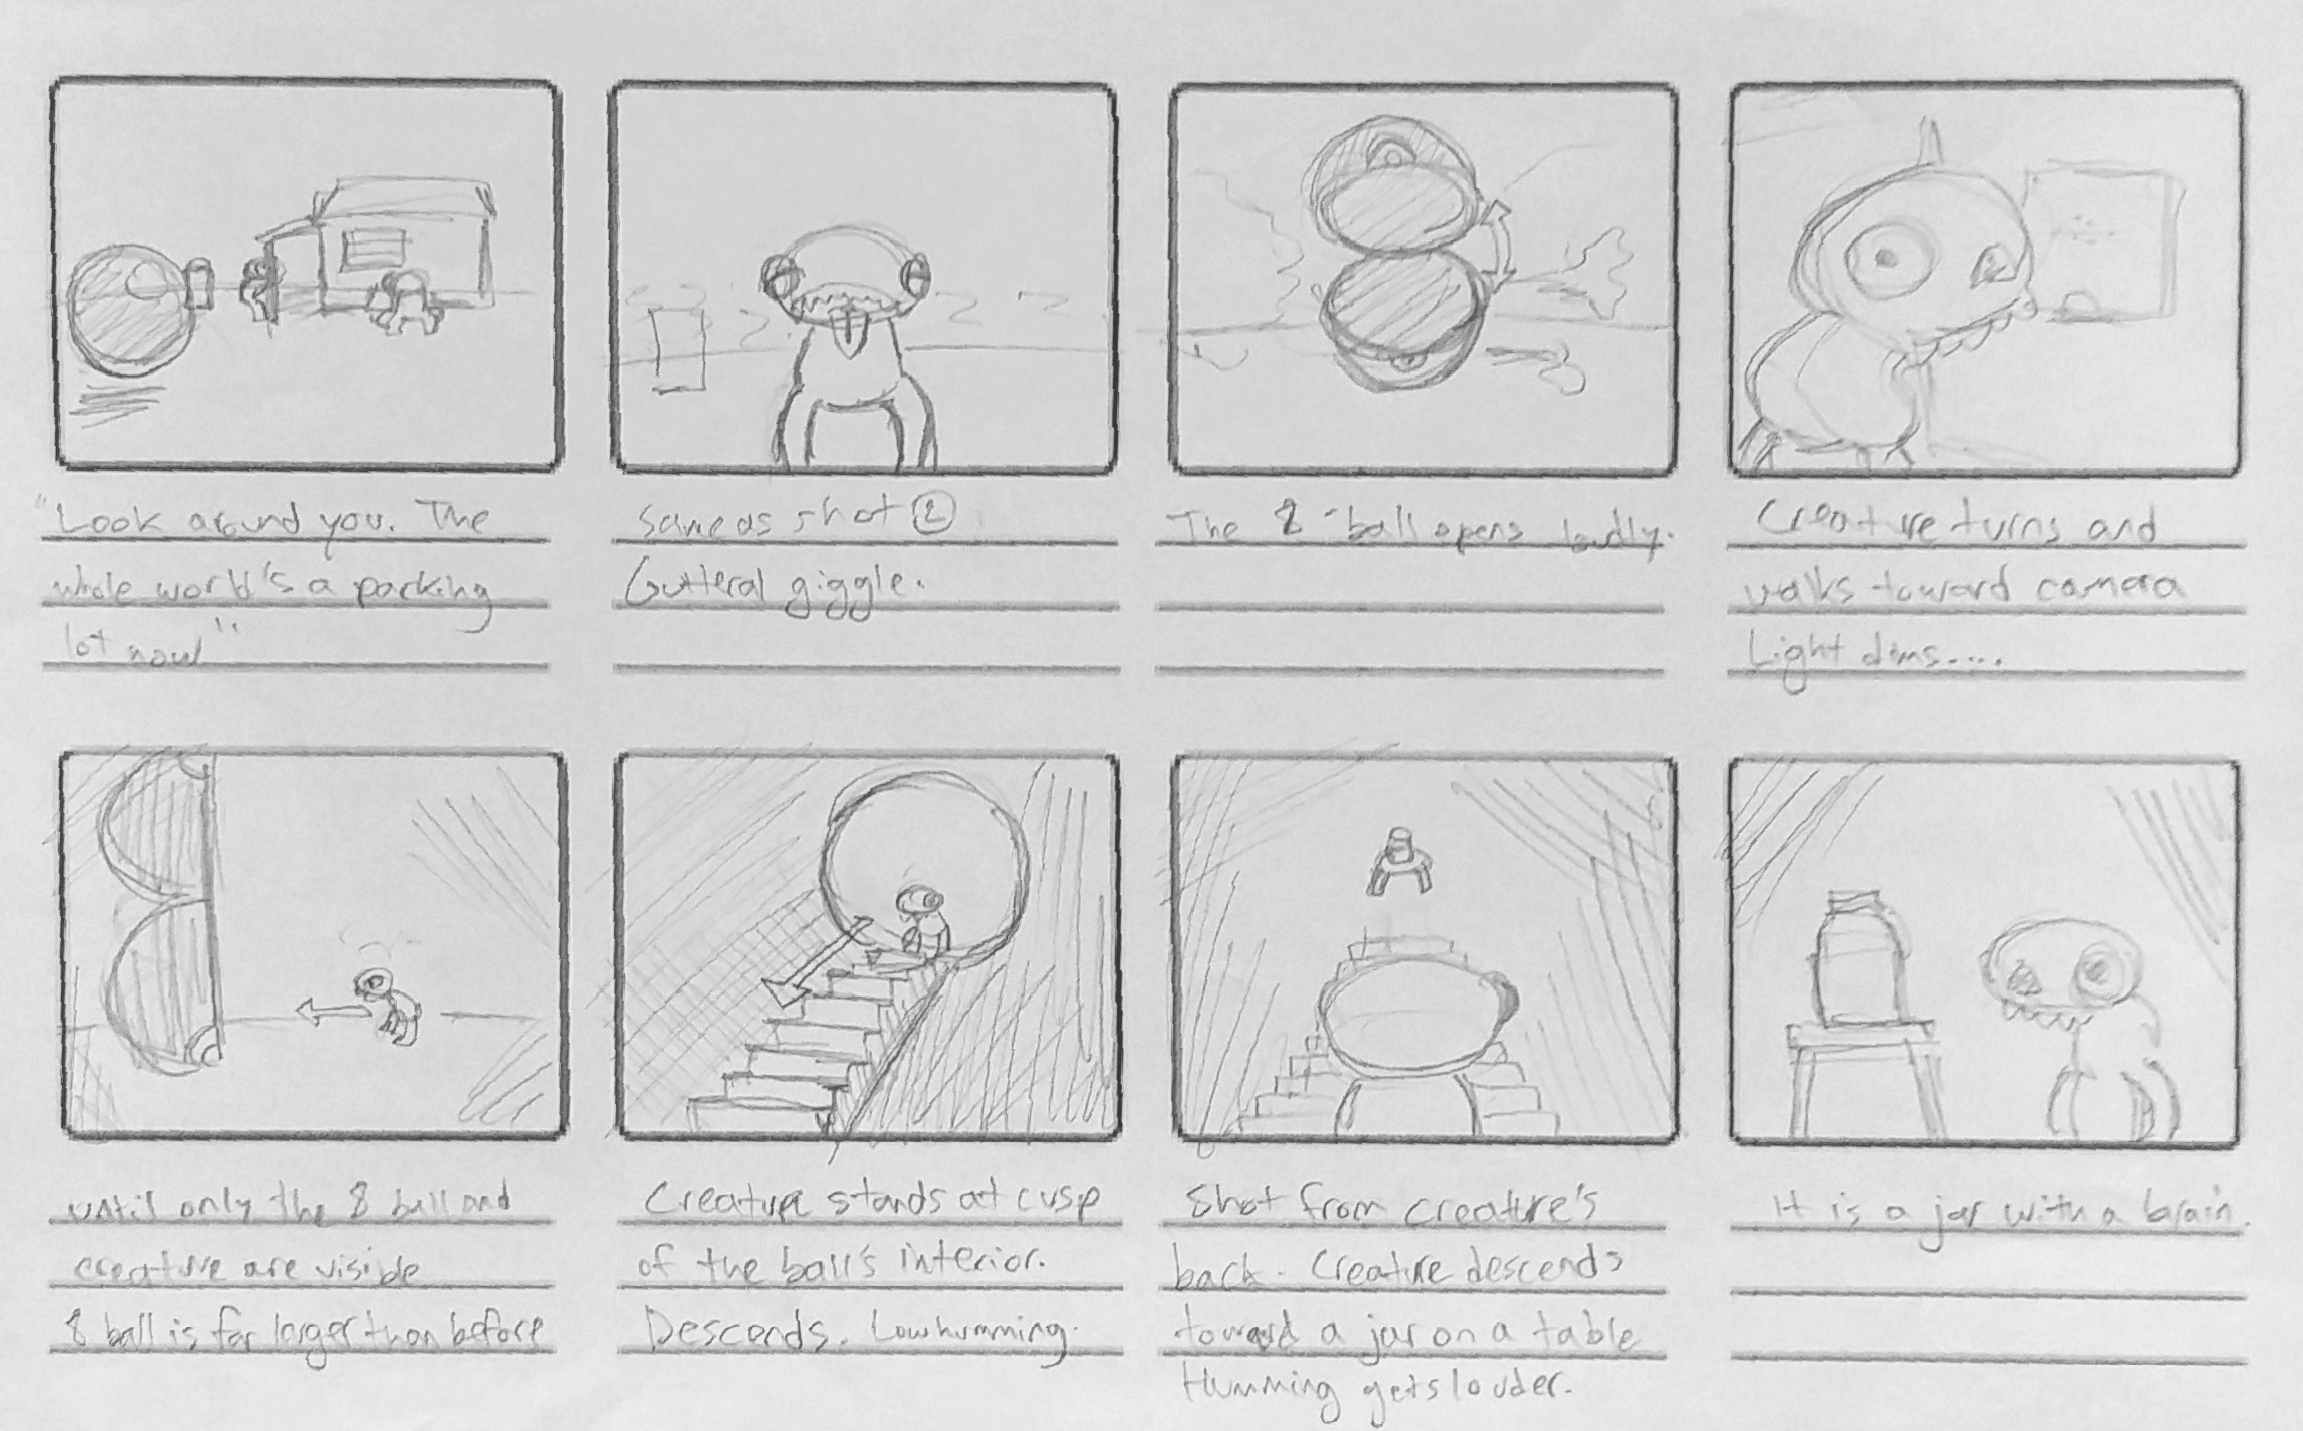 "Look around you. The
whole world's a parking
lot now"
Same as shot ②
Gutteral giggle.
The 8-ball opens loudly.
Creature turns and
walks toward camera
Light dims....
until only the 8 ball and
creature are visible
8 ball is far larger than before
Creature stands at cusp
of the ball's interior.
Descends. Low humming.
Shot from creature's
back. Creature descends
toward a jar on a table
Humming gets louder.
It is a jar with a brain.